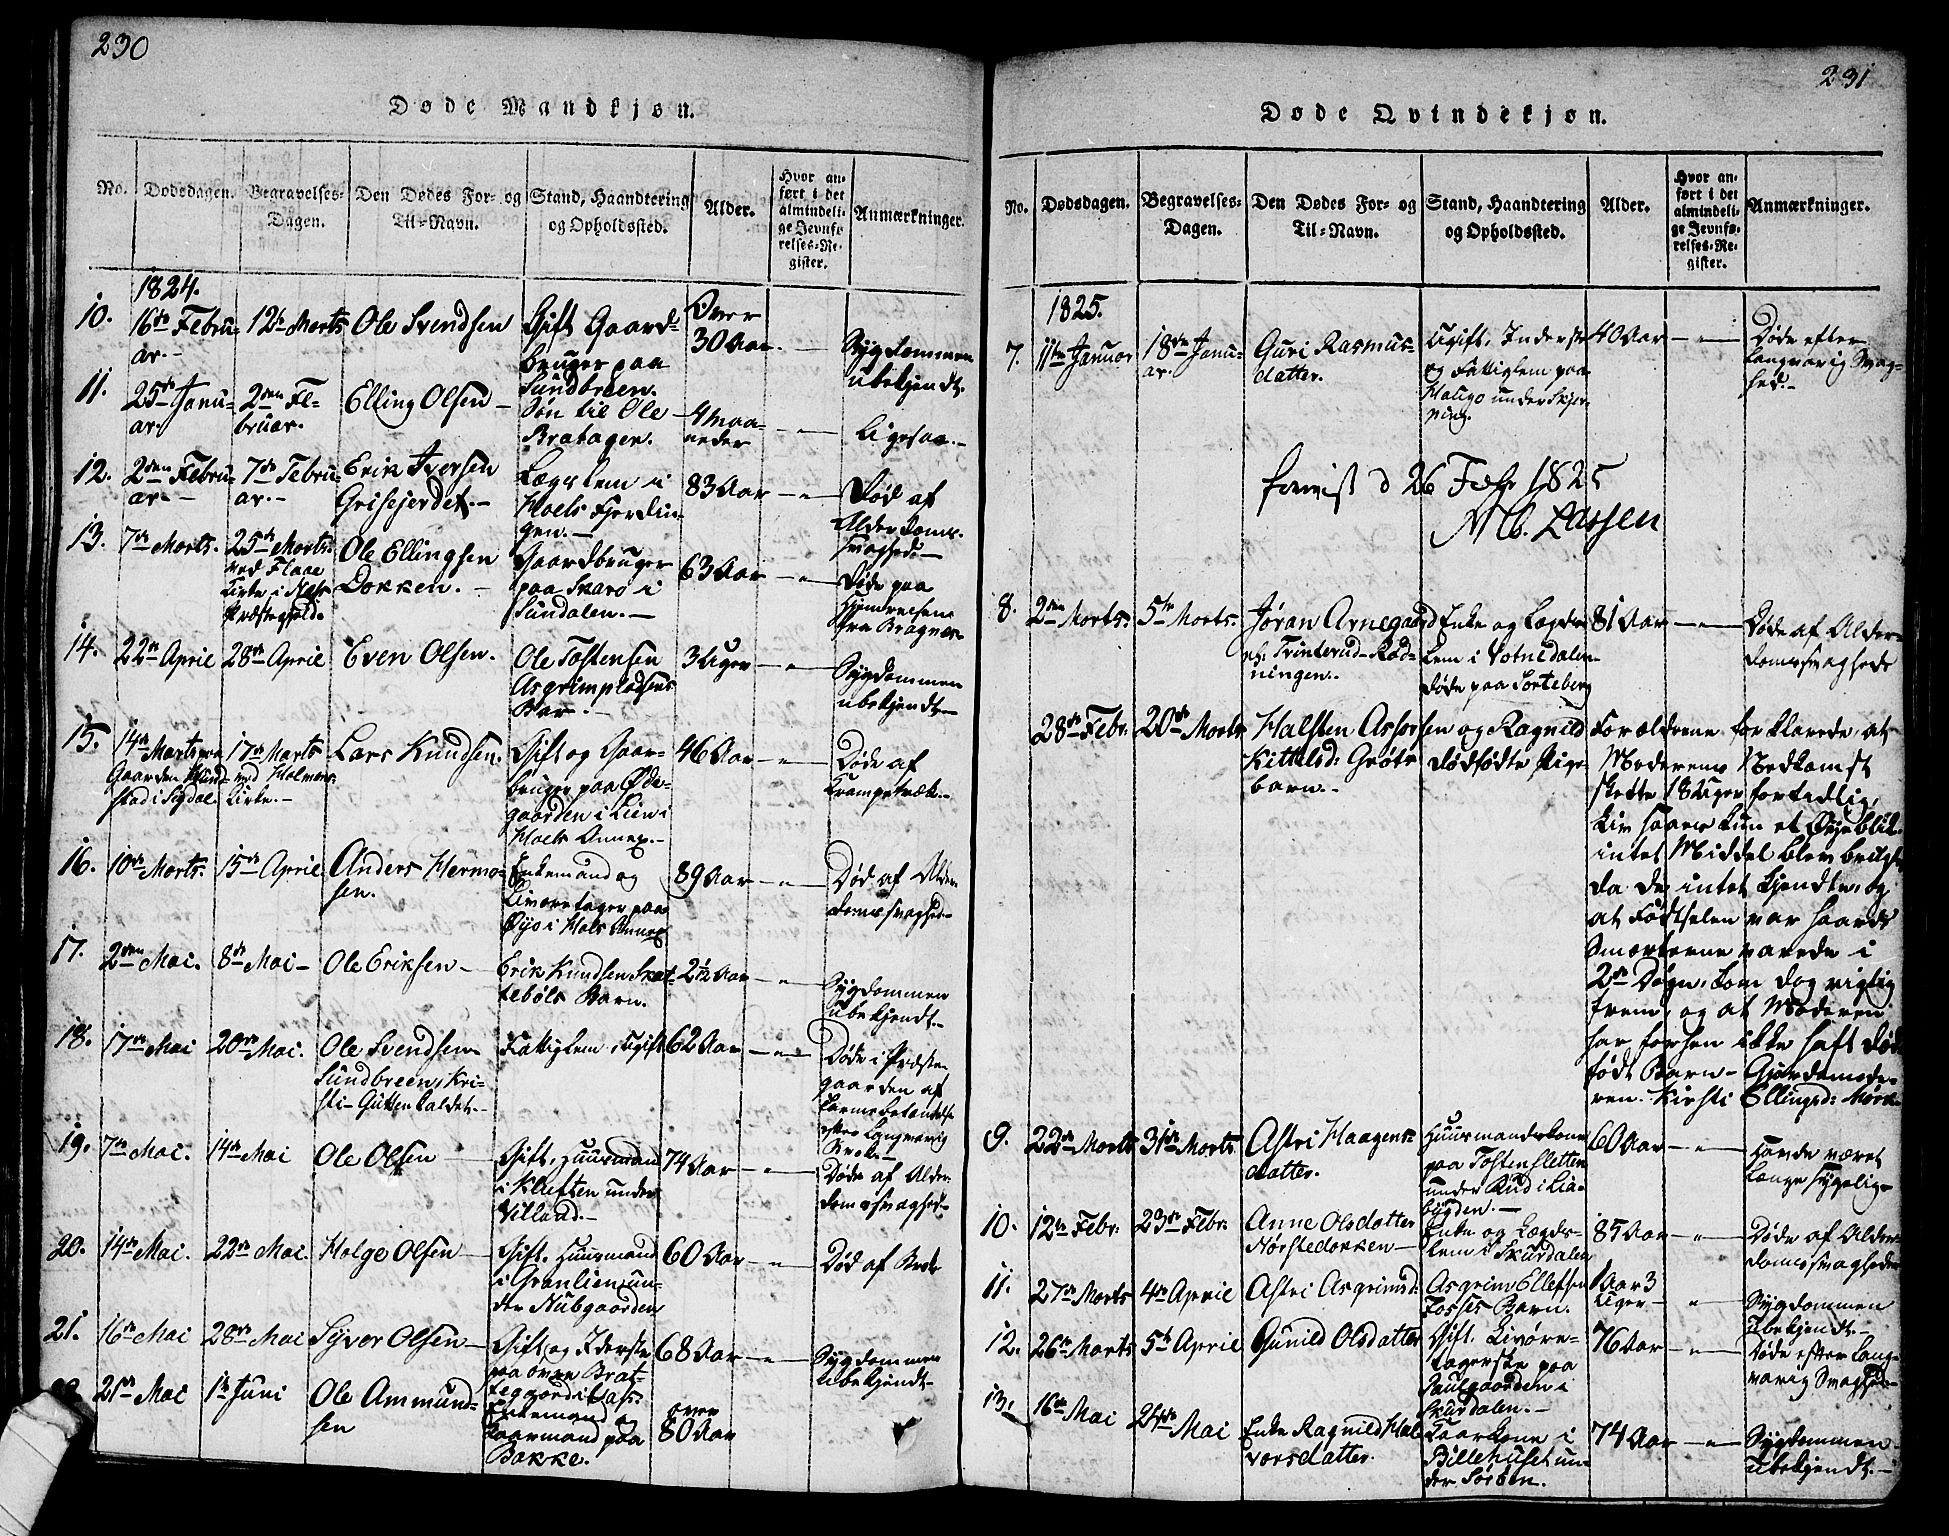 230
Døde Mandkjøn.
No.
Dødsdagen.
Begravelses-
Dagen.
Den Dødes For- og
Til-Navn.
Stand, Haandtering
og Opholdssted.
Alder.
Hvor an-
ført i det
almindeli-
ge Jevnfø-
relses-Re-
gister.
Anmærkninger.
1824.
10.
16de Febru-
ar.-
12te Marts
Ole Svendsen
Gift Gaard-
bruger paa
Sundbreen.
Over
30 Aar.
Sygdommen
ubekjendt.
11.
25de Janu-
ar.
2den Fe-
bruar.
Elling Olsen
Søn til Ole
Bratagen.
4 Maa-
neder
Ligesaa.
12.
2den Febru-
ar.-
7de Febru-
ar.-
Erik Iversen
Grisejerdet.-
Lægslem i
Hoels Fjerdin-
gen.-
83 Aar
Død af
Alderdoms-
svaghed.
13.
7de Marts.
25de Marts.
ved Flaae
Kirke i Næs
Præstegjeld.
Ole Ellingsen
Dokken.-
Gaardbruger
paa Skarø i
Sundalen.-
63 Aar
Døde paa
Hjemreisen
fra Bragnæs.
14.
22de April
28de April
Even Olsen.
Ole Tostensen
Asgrimpladsens
Barn.-
3 Uger
Sygdommen
ubekjendt
15.
14de Marts paa
Gaarden
stad i Sigdal
17de Marts
ved Holmens
Kirke.-
Lars Knudsen.
Gift og Gaar-
bruger paa Øde-
gaarden i Lien i
Hoels Annex.-
46 Aar
Døde af
Krampetræk.
16.
10de Marts.
15de April
Anders Hermo-
sen.
Enkemand og
Livøretager paa
Øijo i Hols Annex
89 Aar
Død af Alder
domssvaghed
17.
2den Mai.
8de Mai
Ole Eriksen
Erik Knudsen Skat-
tebøls Barn.
2 1/2 Aar
Sygdommen
ubekjendt.
18.
17de Mai
20de Mai.
Ole Svendsen
Sundbreen, Kri-
sti-Gutten kaldet.
Fattiglem, Ugift
62 Aar
Døde i Præste
gaarden af
Tarmebetændelse
efter langvarig
Brok.
19.
7de Mai.
14de Mai
Ole Olsen
Gift, Huusmand
i Kløften under
Villand.-
74 Aar
Døde af Alder-
domssvaghed
20.
14de Mai.
22de Mai.
Holge Olsen
Gift, Huusmand
i Grønlien un-
der Nubgaarden
60 Aar
Død af
21.
16de Mai
28de Mai
Syver Olsen
Gift og Inderste
paa øvre Brat-
tegaard i
68 Aar
Sygdommen
ubekjendt
21de Mai
1te Juni
Ole Ammund-
sen
Enkemand og
Kaarmand paa
Bakke.
over
80 Aar
231
Døde Qvindekjøn.
No.
Dødsdagen.
Begravelses-
Dagen.
Den Dødes For- og
Til-Navn.
Stand, Haandtering
og Opholdssted.
Alder.
Hvor an-
ført i det
almindeli-
ge Jevnfø-
relses-Re-
gister.
Anmærkninger.
1825.
7.
11te Januar
18de Janu-
ar.
Guri Rasmus-
datter.
Ugift, Inderste
og Fattiglem paa
Haugo under Skjer-
ping.
40 Aar
Døde efter
langvarig Svag-
hed.
d 26 Febr 1825
Lassen
8.
2den Marts.
5te Marts.
Jøran Arnegaard
Trinterud-Rød-
ningen.
Enke og Lægds-
lem i Votnedalen
døde paa Sorteberg
81 Aar
Døde af Alder-
domssvaghed
28de Febr.
20de Marts
Halsten Assorsen og Ragnild
Kittelsd: Grøts dødfødte Pige-
barn.
Forældrene forklarede, at
Moderens Nedkomst
skette 18 Uger fortidlig,
Liv saaes kun et Øyeblik
intet Middel blev brugt
da de intet kjendte, og
at Fødtselen var haard
Smerterne varede i
2de Døgn, kom dog rigtig
frem, og at Moderen
har forhen ikke haft død
født Barn- Gjordemode-
ren. Kirsti Ellingsd: Mørk
9.
22de Marts
31te Marts
Astri Haagens-
datter.
Huusmandskone
paa Tostensletten
under Rud i Lia-
bygden.-
60 Aar
Havde været
længe sygelig
10.
12te Febr.
23de Febr.
Anne Olsdatter
Nørstedokken
Enke og Lægds-
lem i Skurdalen
85 Aar
Døde af Alder-
domssvaghed
11.
27de Marts
4de April
Astri Asgrimsd:
Asgrim Ellefsen
Fosses Barn.
1 Aar 3
Uger
Sygdommen
ubekjendt.
12.
26de Marts
5te April
Gunild Olsdatter
Gift. Livøre-
tagerske paa
Paulgaarden i
Skurdalen.-
76 Aar
Døde efter lang-
varig Svaghed
13.
16de Mai
24de Mai
Enke Ragnild Hal
vorsdatter.
Kaarkone i
Billehuset un-
der Sørben.
74 Aar
Sygdommen
ubekjendt.